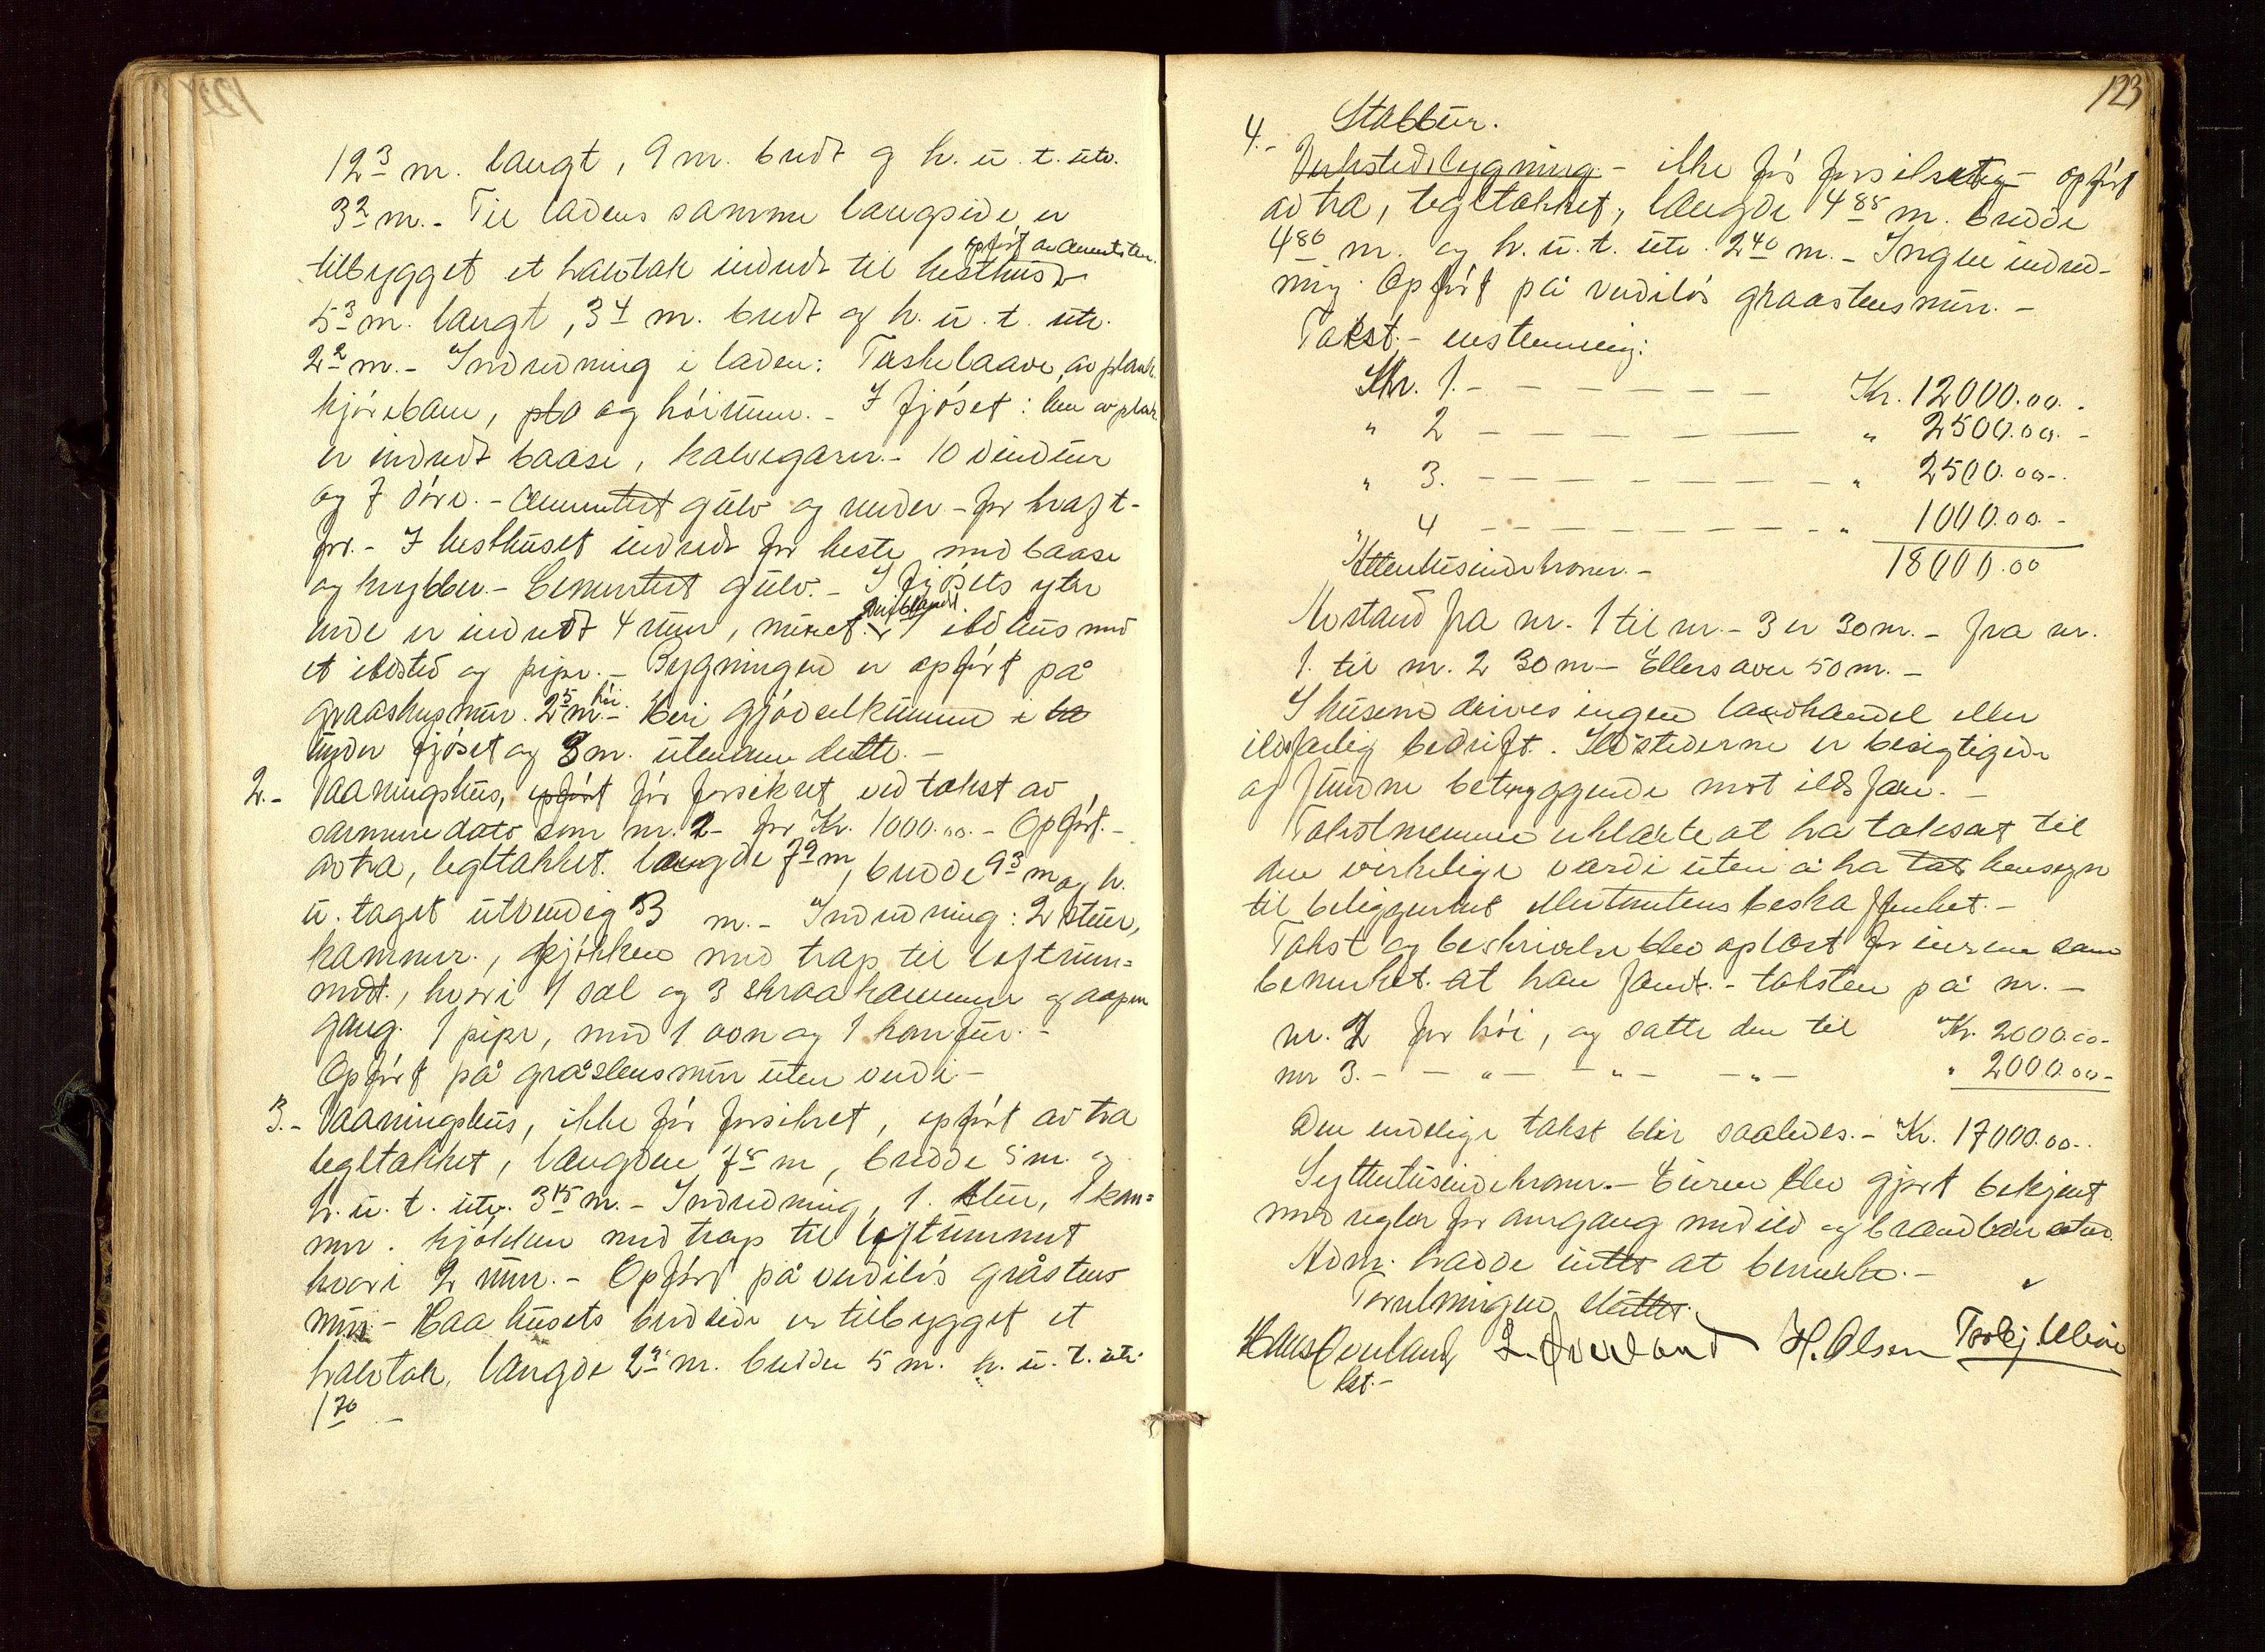 12³ m. langt, 9 m. bredt og h. u. t. utv.
3² m. - Til ladens samme langside er
opført av cementsten.
tilbygget et halvtak indredt til hesthus
5³ m. langt, 3⁴ m. bredt og h. u. t. utv.
2² m. - Indredning i laden: Tæskelaave, av plank.
kjørebane, og høirum. - I fjøset:
er indredt baase, kalvegarer. - 10 vinduer
og 7 døre. - Cementert gulv og under - for kraft-
for. - I hesthuset indredt for heste med baase
og krybber. - Cementert gulv. - I fjøsets ytre
ende er indredt 4 rum, 1 ildhus med
et ildsted og pipe. - Bygningen er opført på
graastensmur. 2⁵ m. høi. - Heri gjødselkummer i
under fjøset og 3 m. utenom dette. -
2. - Vaaningshus, før forsikret ved takst av
samme dato som nr. 2 - for Kr. 1000.00. - Opført. -
av træ, tegltækket. længde 7⁹ m, bredde 9³ m og h.
u. taget utvendig 3 m. - Indredning: 2 stuer,
kammer., kjøkken med trap til loftrum=
met., hvori 1 sal og 3 skraakammer og aapen
gang. 1 pipe, med 1 ovn og 1 komfur. -
Opført på gråstensmur uten verdi -
3. - Vaaningshus, ikke før forsikret, opført av træ
tegltækket, længden 7⁵ m, bredde 5 m. og
h. u. t. utv. 3¹⁵ m. - Indredning, 1. stue, 1 kam=
mer. kjøkken med trap til loftrummet
hvori 2 rum. - Opført på verdiløs gråstens
mur. - Paa husets bredside er tilbygget et
halvtak, længde 2³ m. bredde 5 m. h. u. t. utv.
1⁷⁰ -
123
Stabbur.
4. - Verkstedsbygning - ikke før forsikret - opført
av træ, tegltækket, længde 4⁸⁵ m. bredde
4⁸⁰ m. og h. u. t. utv. 2⁴⁰ m. - Ingen indred-
ning. Opført på verdiløs graastensmur. -
Takst. - enstemmig:
Nr. 1. - - - - - - Kr. 12000.00. -
" 2 - - - - - - " 2500.00. -
" 3. - - - - - - " 2500.00. -
" 4 - - - - - - " 1000.00. -
Attentusindekroner. - 18000.00
Avstand fra nr. 1 til nr. - 3 er 30 m. - fra nr.
1. til nr. 2 30 m - Ellers over 50 m. -
I husene drives ingen landhandel eller
ildsfarlig bedrift. Ildstederne er besigtigede
og fundne betryggende mot ildsfare. -
Takstmennene erklærte at ha taksert til
den virkelige værdi uten å ha tat hensyn
til beliggenhet eller tomtens beskaffenhet. -
Takst og beskrivelse blev oplæst for eieren som
bemerket at han fandt. - taksten på nr. -
nr. 2 for høi, og satte den til Kr. 2000.00 -
nr 3. - - " - - " - - " - " 2000.00 -
Den endelige takst blir saaledes. - Kr. 17000.00 -
Syttentusindekroner. - Eieren blev gjort bekjent
med regler for omgang med ild og brandbare stof.
Adm. hadde intet at bemerke. -
Forretningen sluttet.
Hans Overland L. Øverland H. Olsen
lst. -